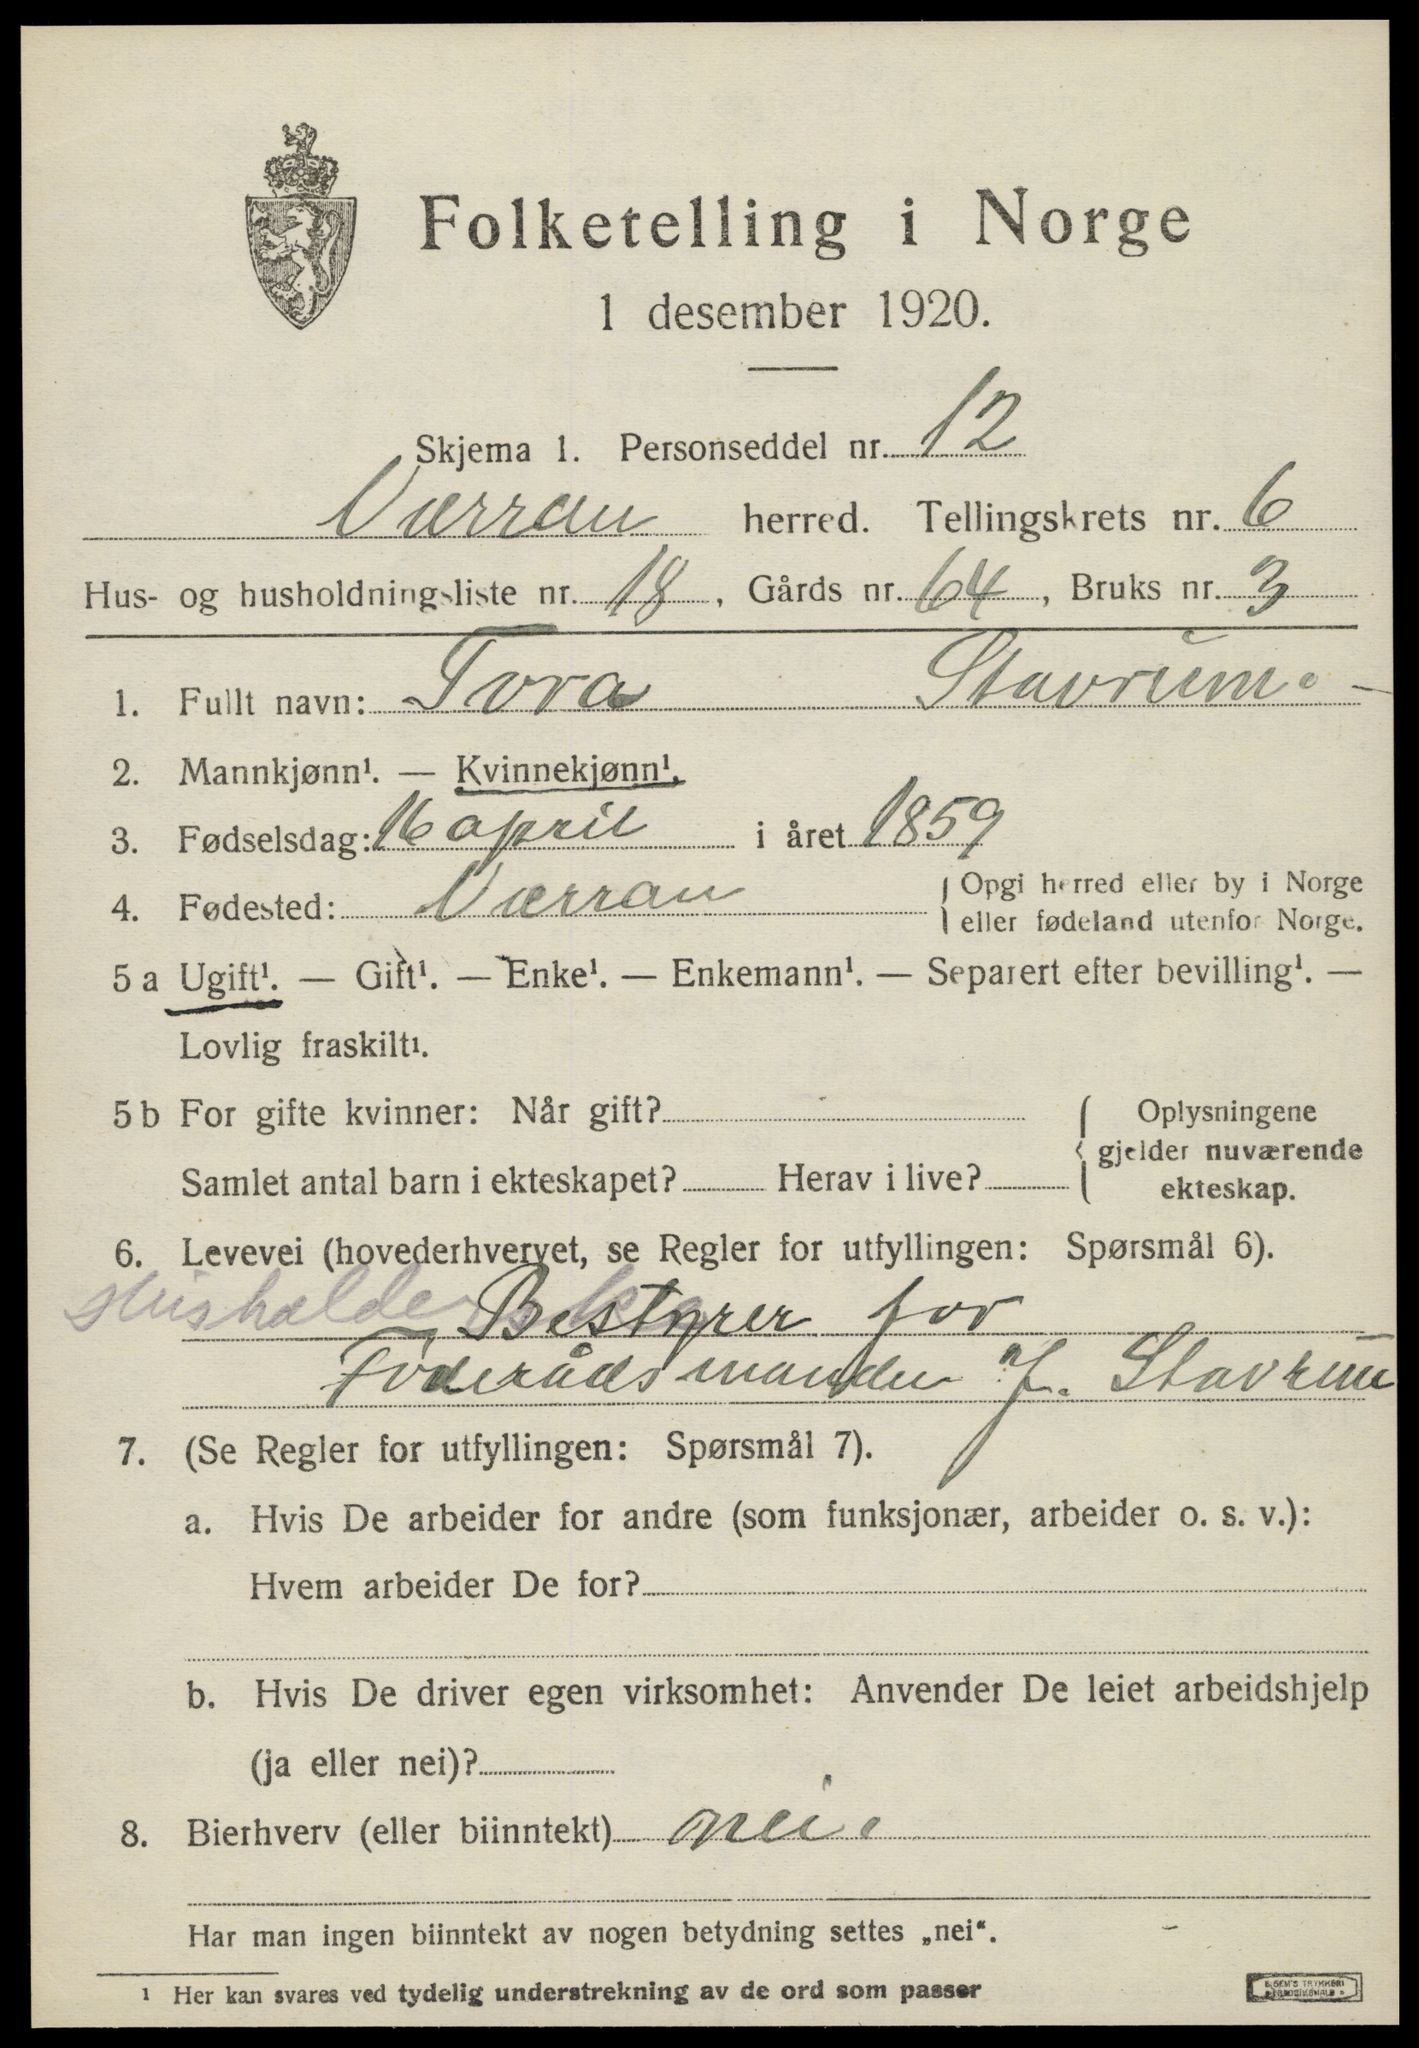 Folketelling i Norge
1 desember 1920.
Skjema 1. Personseddel nr. 12
Værran herred. Tellingskrets nr. 6
Hus- og husholdningsliste nr. 18, Gårds nr. 64, Bruks nr. 3
1. Fullt navn: Tora Stavrum.
2. Mannkjønn¹. — Kvinnekjønn¹.
3. Fødselsdag: 16 april i året 1859
4. Fødested: Værran { Opgi herred eller by i Norge
eller fødeland utenfor Norge.
5 a Ugift¹. — Gift¹. — Enke¹. — Enkemann¹. — Separert efter bevilling¹. —
Lovlig fraskilt¹.
5 b For gifte kvinner: Når gift? { Oplysningene
gjelder nuværende
Samlet antal barn i ekteskapet? Herav i live? ekteskap.
6. Levevei (hovederhvervet, se Regler for utfyllingen: Spørsmål 6).
Bestyrer for
Föderådsmanden J. Stavrum
7. (Se Regler for utfyllingen: Spørsmål 7).
a. Hvis De arbeider for andre (som funksjonær, arbeider o. s. v.):
Hvem arbeider De for?
b. Hvis De driver egen virksomhet: Anvender De leiet arbeidshjelp
(ja eller nei)?
8. Bierhverv (eller biinntekt) nei.
Har man ingen biinntekt av nogen betydning settes „nei“.
¹ Her kan svares ved tydelig understrekning av de ord som passer